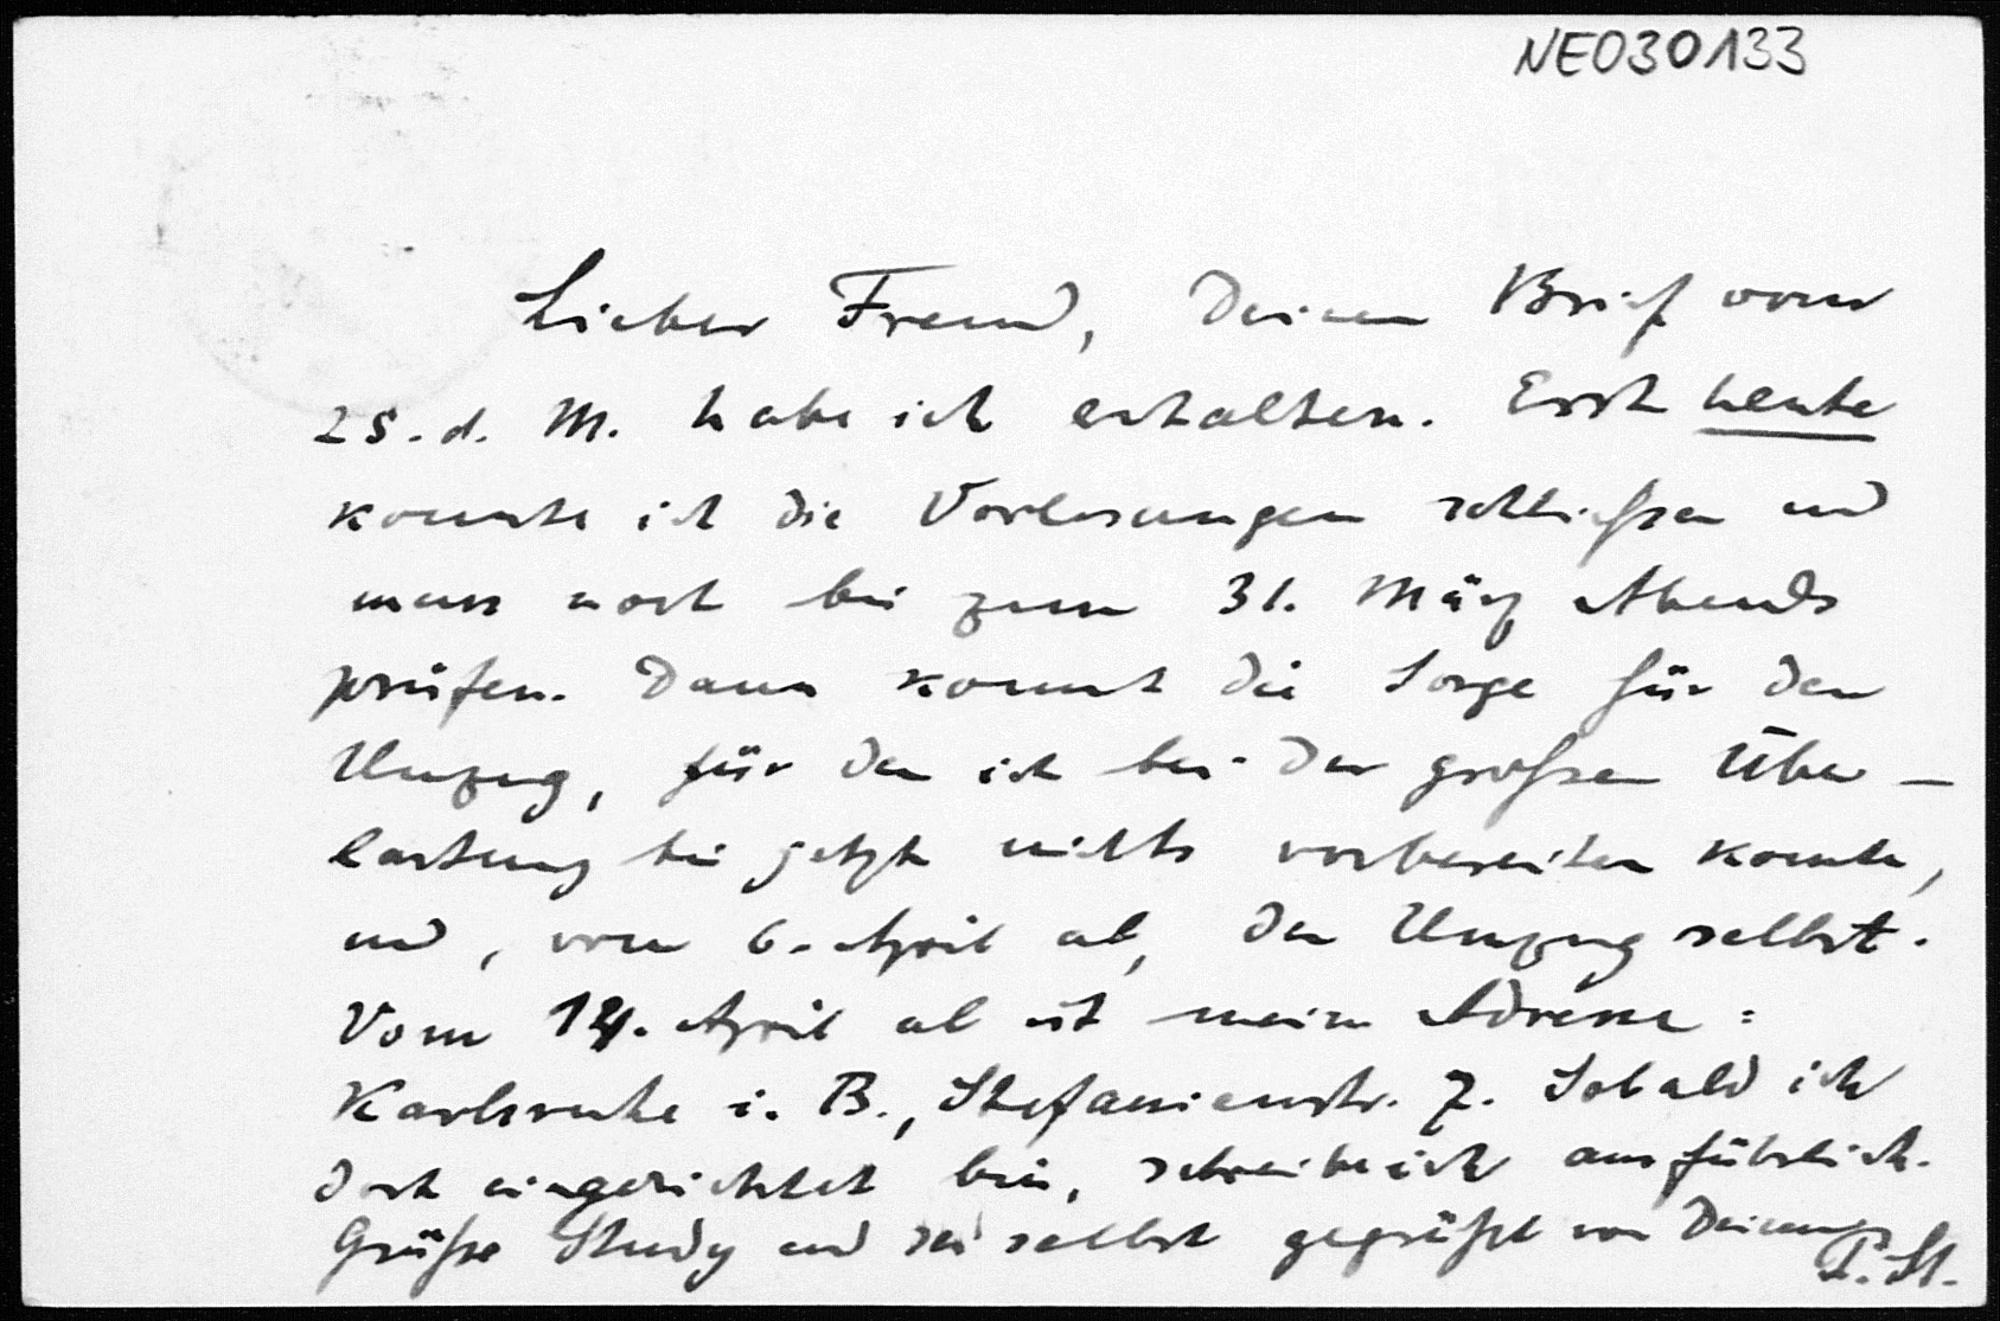 NE030133
Lieber Freund, Deinen Brief vom
25. d. M. habe ich erhalten. Erst heute
konnte ich die Vorlesungen schließen und
muss noch bis zum 31. März Abends
prüfen. Dann kommt die Sorge für den
Umzug, für den ich bei der großen Über-
lastung bis jetzt nichts vorbereiten konnte,
und, vom 6. April ab, der Umzug selbst.
Vom 14. April ab ist meine Adresse:
Karlsruhe i. B., Stefanienstr. 7. Sobald ich
dort eingerichtet bin, schreibe ich ausführlich.
Grüße Study und sei selbst gegrüßt von Deinem
P. St.